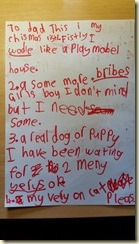 To dad This i my
chismas list Fistly I
woole like a Playmobel
house.
2. a some more bribes
girls boy I don't mind
but I need
Some.
3. a real dog or Puppy
I have been wating
for 2 meny
yelys ok
my very on cat
Pleas